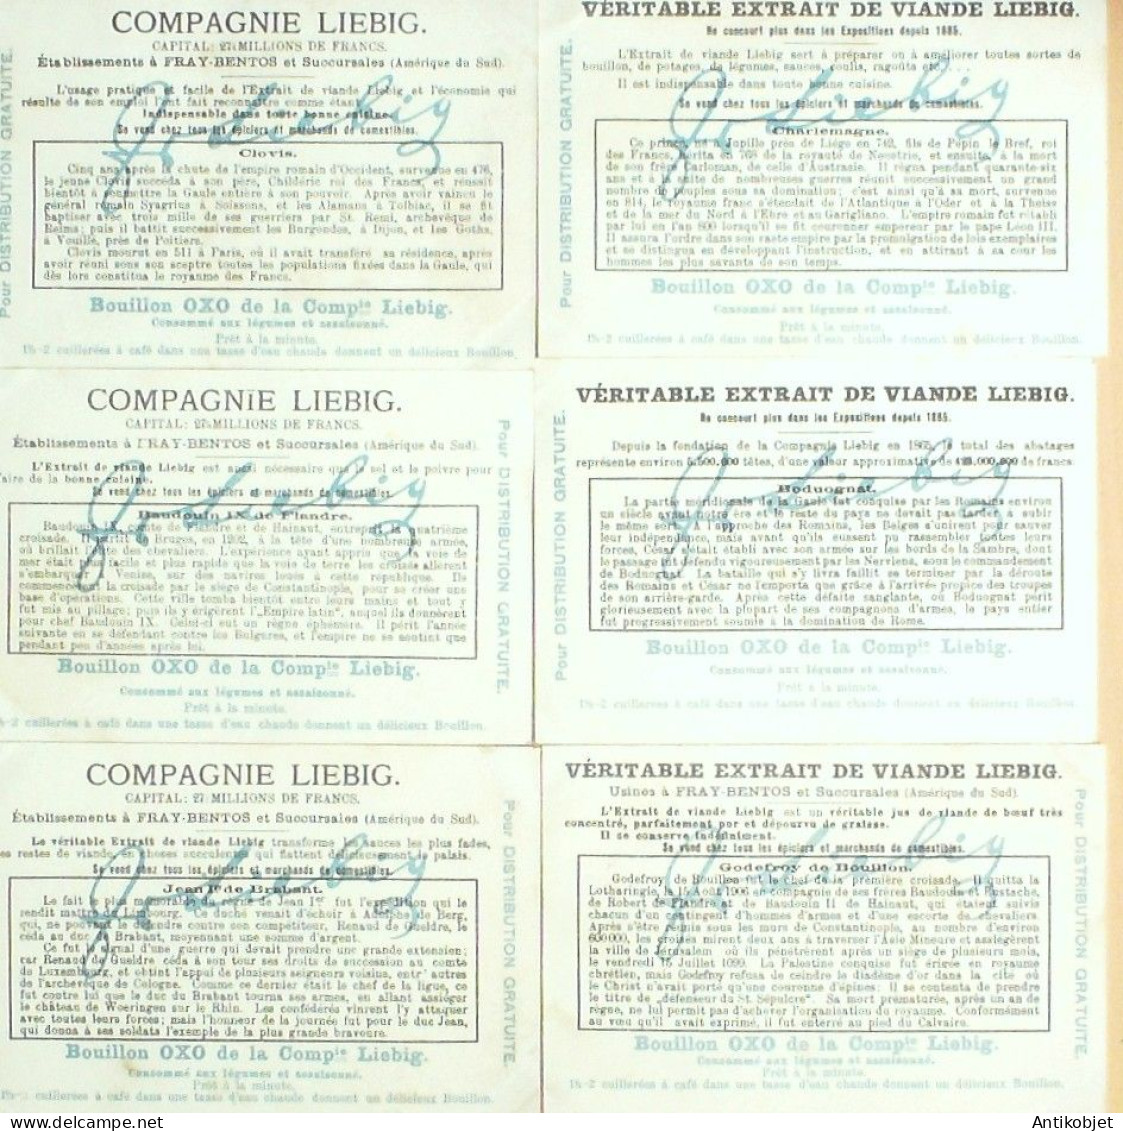 COMPAGNIE LIEBIG.
CAPITAL: 27½ MILLIONS DE FRANCS.
Établissements à FRAY-BENTOS et Succursales (Amérique du Sud).
L'usage pratique et facile de l'Extrait de viande Liebig et l'économie qui
résulte de son emploi l'ont fait reconnaître comme étant
Indispensable dans toute bonne cuisine.
Se vend chez tous les épiciers et marchands de comestibles.
Clovis.
Cinq ans après la chute de l'empire romain d'Occident, survenue en 476,
le jeune Clovis succéda à son père, Childéric roi des Francs, et réussit
bientôt à soumettre la Gaule entière à son pouvoir. Après avoir vaincu le
général romain Syagrius à Soissons, et les Alamans à Tolbiac, il se fit
baptiser avec trois mille de ses guerriers par St. Remi, archevêque de
Reims; puis il battit successivement les Burgondes, à Dijon, et les Goths,
à Vouillé, près de Poitiers.
Clovis mourut en 511 à Paris, où il avait transféré sa résidence, après
avoir réuni sous son sceptre toutes les populations fixées dans la Gaule, qui
dès lors constitua le royaume des Francs.
Bouillon OXO de la Compie Liebig.
Consommé aux légumes et assaisonné.
Prêt à la minute.
1½-2 cuillerées à café dans une tasse d'eau chaude donnent un délicieux Bouillon.
Pour DISTRIBUTION GRATUITE.
VÉRITABLE EXTRAIT DE VIANDE LIEBIG.
Ne concourt plus dans les Expositions depuis 1885.
L'Extrait de viande Liebig sert à préparer ou à améliorer toutes sortes de
bouillon, de potages, de légumes, sauces, coulis, ragoûts etc...
Il est indispensable dans toute bonne cuisine.
Se vend chez tous les épiciers et marchands de comestibles.
Charlemagne.
Ce prince, né à Jupille près de Liége en 742, fils de Pépin le Bref, roi
des Francs, hérita en 768 de la royauté de Neustrie, et ensuite, à la mort
de son frère Carloman, de celle d'Australie. Il régna pendant quarante-six
ans et à la suite de nombreuses guerres réunit successivement un grand
nombre de peuples sous sa domination; c'est ainsi qu'à sa mort, survenue
en 814, le royaume franc s'étendait de l'Atlantique à l'Oder et à la Theiss
et de la mer du Nord à l'Ebre et au Garigliano. L'empire romain fut rétabli
par lui en l'an 800 lorsqu'il se fit couronner empereur par le pape Léon III.
Il assura l'ordre dans son vaste empire par la promulgation de lois exemplaires
et se distingua en développant l'instruction, et en attirant à sa cour les
hommes les plus savants de son temps.
Bouillon OXO de la Compie Liebig.
Consommé aux légumes et assaisonné.
Prêt à la minute.
1½-2 cuillerées à café dans une tasse d'eau chaude donnent un délicieux Bouillon.
Pour DISTRIBUTION GRATUITE.
COMPAGNIE LIEBIG.
CAPITAL: 27½ MILLIONS DE FRANCS.
Établissements à FRAY-BENTOS et Succursales (Amérique du Sud).
L'Extrait de viande Liebig est aussi nécessaire que le sel et le poivre pour
faire de la bonne cuisine.
Se vend chez tous les épiciers et marchands de comestibles.
Baudouin IX de Flandre.
Baudouin IX, comte de Flandre et de Hainaut, entreprit la quatrième
croisade. Il partit de Bruges, en 1202, à la tête d'une nombreuse armée,
où brillait l'élite des chevaliers. L'expérience ayant appris que la voie de
mer était plus facile et plus rapide que la voie de terre les croisés allèrent
s'embarquer à Venise, sur des navires loués à cette république. Ils
commencèrent la croisade par le siège de Constantinople, pour se créer une
base d'opérations. Cette ville tomba bientôt entre leurs mains et tout y
fut mis au pillage; puis ils y érigèrent l'„Empire latin", auquel ils donnèrent
pour chef Baudouin IX. Celui-ci eut un règne éphémère. Il périt l'année
suivante en se défendant contre les Bulgares, et l'empire ne se soutint que
pendant peu d'années après lui.
Bouillon OXO de la Compie Liebig.
Consommé aux légumes et assaisonné.
Prêt à la minute.
1½-2 cuillerées à café dans une tasse d'eau chaude donnent un délicieux Bouillon.
Pour DISTRIBUTION GRATUITE.
VÉRITABLE EXTRAIT DE VIANDE LIEBIG.
Ne concourt plus dans les Expositions depuis 1885.
Depuis la fondation de la Compagnie Liebig en 1865, le total des abatages
représente environ 5.500.000 têtes, d'une valeur approximative de francs
Boduognat.
La partie méridionale de la Gaule fut conquise par les Romains environ
un siècle avant notre ère et le reste du pays ne devait pas tarder à subir
le même sort. A l'approche des Romains, les Belges s'unirent pour sauver
leur indépendance, mais avant qu'ils eussent pu rassembler toutes leurs
forces, César était établi avec son armée sur les bords de la Sambre, dont
le passage fut défendu vigoureusement par les Nerviens, sous le commandement
de Boduognat. La bataille qui s'y livra faillit se terminer par la déroute
des Romains et César ne l'emporta que grâce à l'arrivée propice des troupes
de son arrière-garde. Après cette défaite sanglante, où Boduognat périt
glorieusement avec la plupart de ses compagnons d'armes, le pays entier
fut progressivement soumis à la domination de Rome.
Bouillon OXO de la Compie Liebig.
Consommé aux légumes et assaisonné.
Prêt à la minute.
1½-2 cuillerées à café dans une tasse d'eau chaude donnent un délicieux Bouillon.
Pour DISTRIBUTION GRATUITE.
COMPAGNIE LIEBIG.
CAPITAL: 27½ MILLIONS DE FRANCS.
Établissements à FRAY-BENTOS et Succursales (Amérique du Sud).
Le véritable Extrait de viande Liebig transforme les sauces les plus fades,
les restes de viande, en sauces succulentes qui flattent délicieusement le palais.
Se vend chez tous les épiciers et marchands de comestibles.
Jean Ir de Brabant.
Le fait le plus mémorable du règne de Jean Ier fut l'expédition qui le
rendit maître du Limbourg. Ce duché venait d'échoir à Adolphe de Berg,
qui, ne pouvant le défendre contre son compétiteur, Renaud de Gueldre, le
céda au duc de Brabant, moyennant une somme d'argent.
Ce fut le signal d'une guerre qui devait prendre une grande extension;
car Renaud de Gueldre céda à son tour ses droits de succession au comte
de Luxembourg, et obtint l'appui de plusieurs seigneurs voisins, entr' autres
de l'archevêque de Cologne. Comme ce dernier était le chef de la ligue, ce
fut contre lui que le duc du Brabant tourna ses armes, en allant assiéger
le château de Woeringen sur le Rhin. Les confédérés vinrent l'y attaquer
avec toutes leurs forces; mais l'honneur de la journée fut pour le duc Jean,
qui donna à ses soldats l'exemple de la plus grande bravoure.
Bouillon OXO de la Compie Liebig.
Consommé aux légumes et assaisonné.
Prêt à la minute.
1½-2 cuillerées à café dans une tasse d'eau chaude donnent un délicieux Bouillon.
Pour DISTRIBUTION GRATUITE.
VÉRITABLE EXTRAIT DE VIANDE LIEBIG.
Usines à FRAY-BENTOS et Succursales (Amérique du Sud).
L'Extrait de viande Liebig est un véritable jus de viande de bœuf très
concentré, parfaitement pur et dépourvu de graisse.
Il se conserve indéfiniment.
Se vend chez tous les épiciers et marchands de comestibles.
Godefroy de Bouillon.
Godefroy de Bouillon fut le chef de la première croisade. Il quitta la
Lotharingie, le 15 Août 1096 en compagnie de ses frères Baudouin et Eustache,
de Robert de Flandre et de Baudouin II de Hainaut, qui étaient suivis
chacun d'un contingent d'hommes d'armes et d'une escorte de chevaliers.
Après s'être réunis sous les murs de Constantinople, au nombre d'environ
600.000, les croisés mirent deux ans à traverser l'Asie Mineure et assiégèrent
la ville de Jérusalem où ils pénétrèrent après un siège de plusieurs mois,
le vendredi 15 Juillet 1099. La Palestine conquise fut érigée en royaume
chrétien, mais Godefroy refusa de ceindre le diadème d'or dans la cité où
le Christ n'avait porté qu'une couronne d'épines; il se contenta de prendre
le titre de „défenseur du St. Sépulcre". Sa mort prématurée, après un an de
règne, ne lui permit pas d'achever l'organisation du royaume. Conformément
au vœu qu'il avait exprimé, il fut enterré au pied du Calvaire.
Bouillon OXO de la Compie Liebig.
Consommé aux légumes et assaisonné.
Prêt à la minute.
1½-2 cuillerées à café dans une tasse d'eau chaude donnent un délicieux Bouillon.
Pour DISTRIBUTION GRATUITE.
Antikobjet